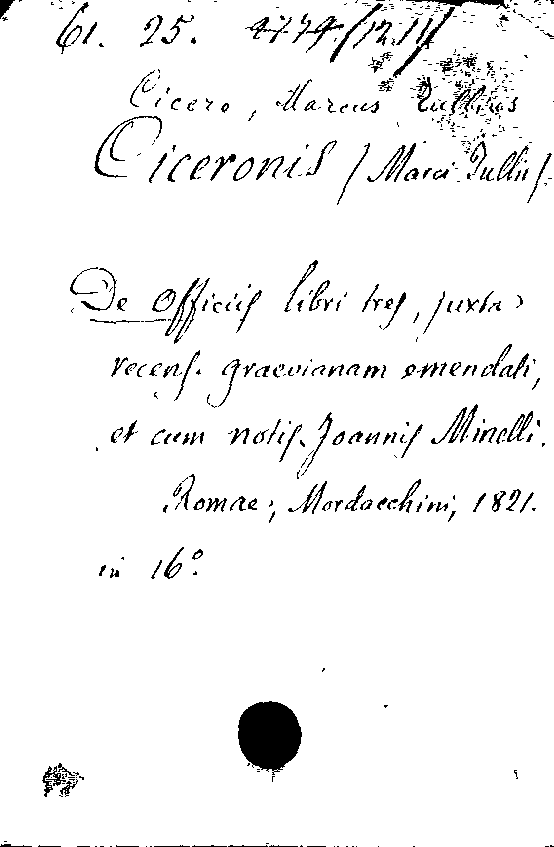 61. 25.
Cicero, Marcus Tullius
Ciceronis / Marci Tullii /.
De Officiis libri tres, juxta
recens. graevianam emendati,
et cum notis Joannis Minelli.
Romae, Mordacchini, 1821.
in 16°.